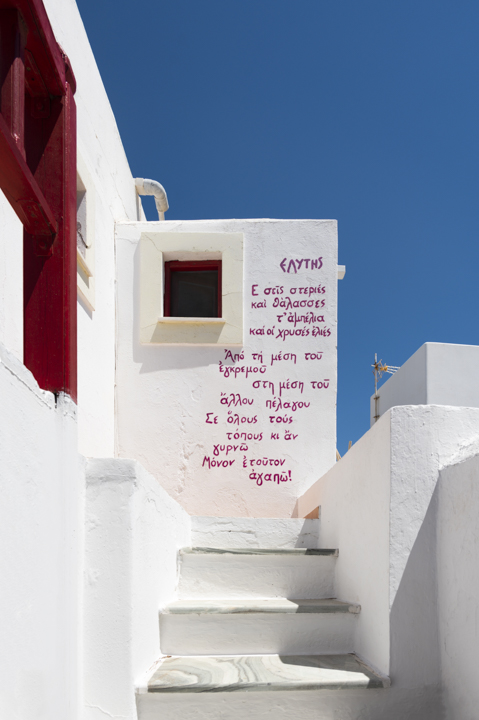 ΕΛΥΤΗΣ
Ε στῖς στεριές
καὶ θάλασσες
τ'ἀμπέλια
καί οἱ χρυσές ἐλιές
Ἀπό τή μέση τοῦ
ἐγκρεμοῦ
στη μέση τοῦ
ἄλλου πέλαγου
Σε ὅλους τούς
τόπους κι ἄν
γυρνῶ
Μόνον ἐτοῦτον
ἀγαπῶ!